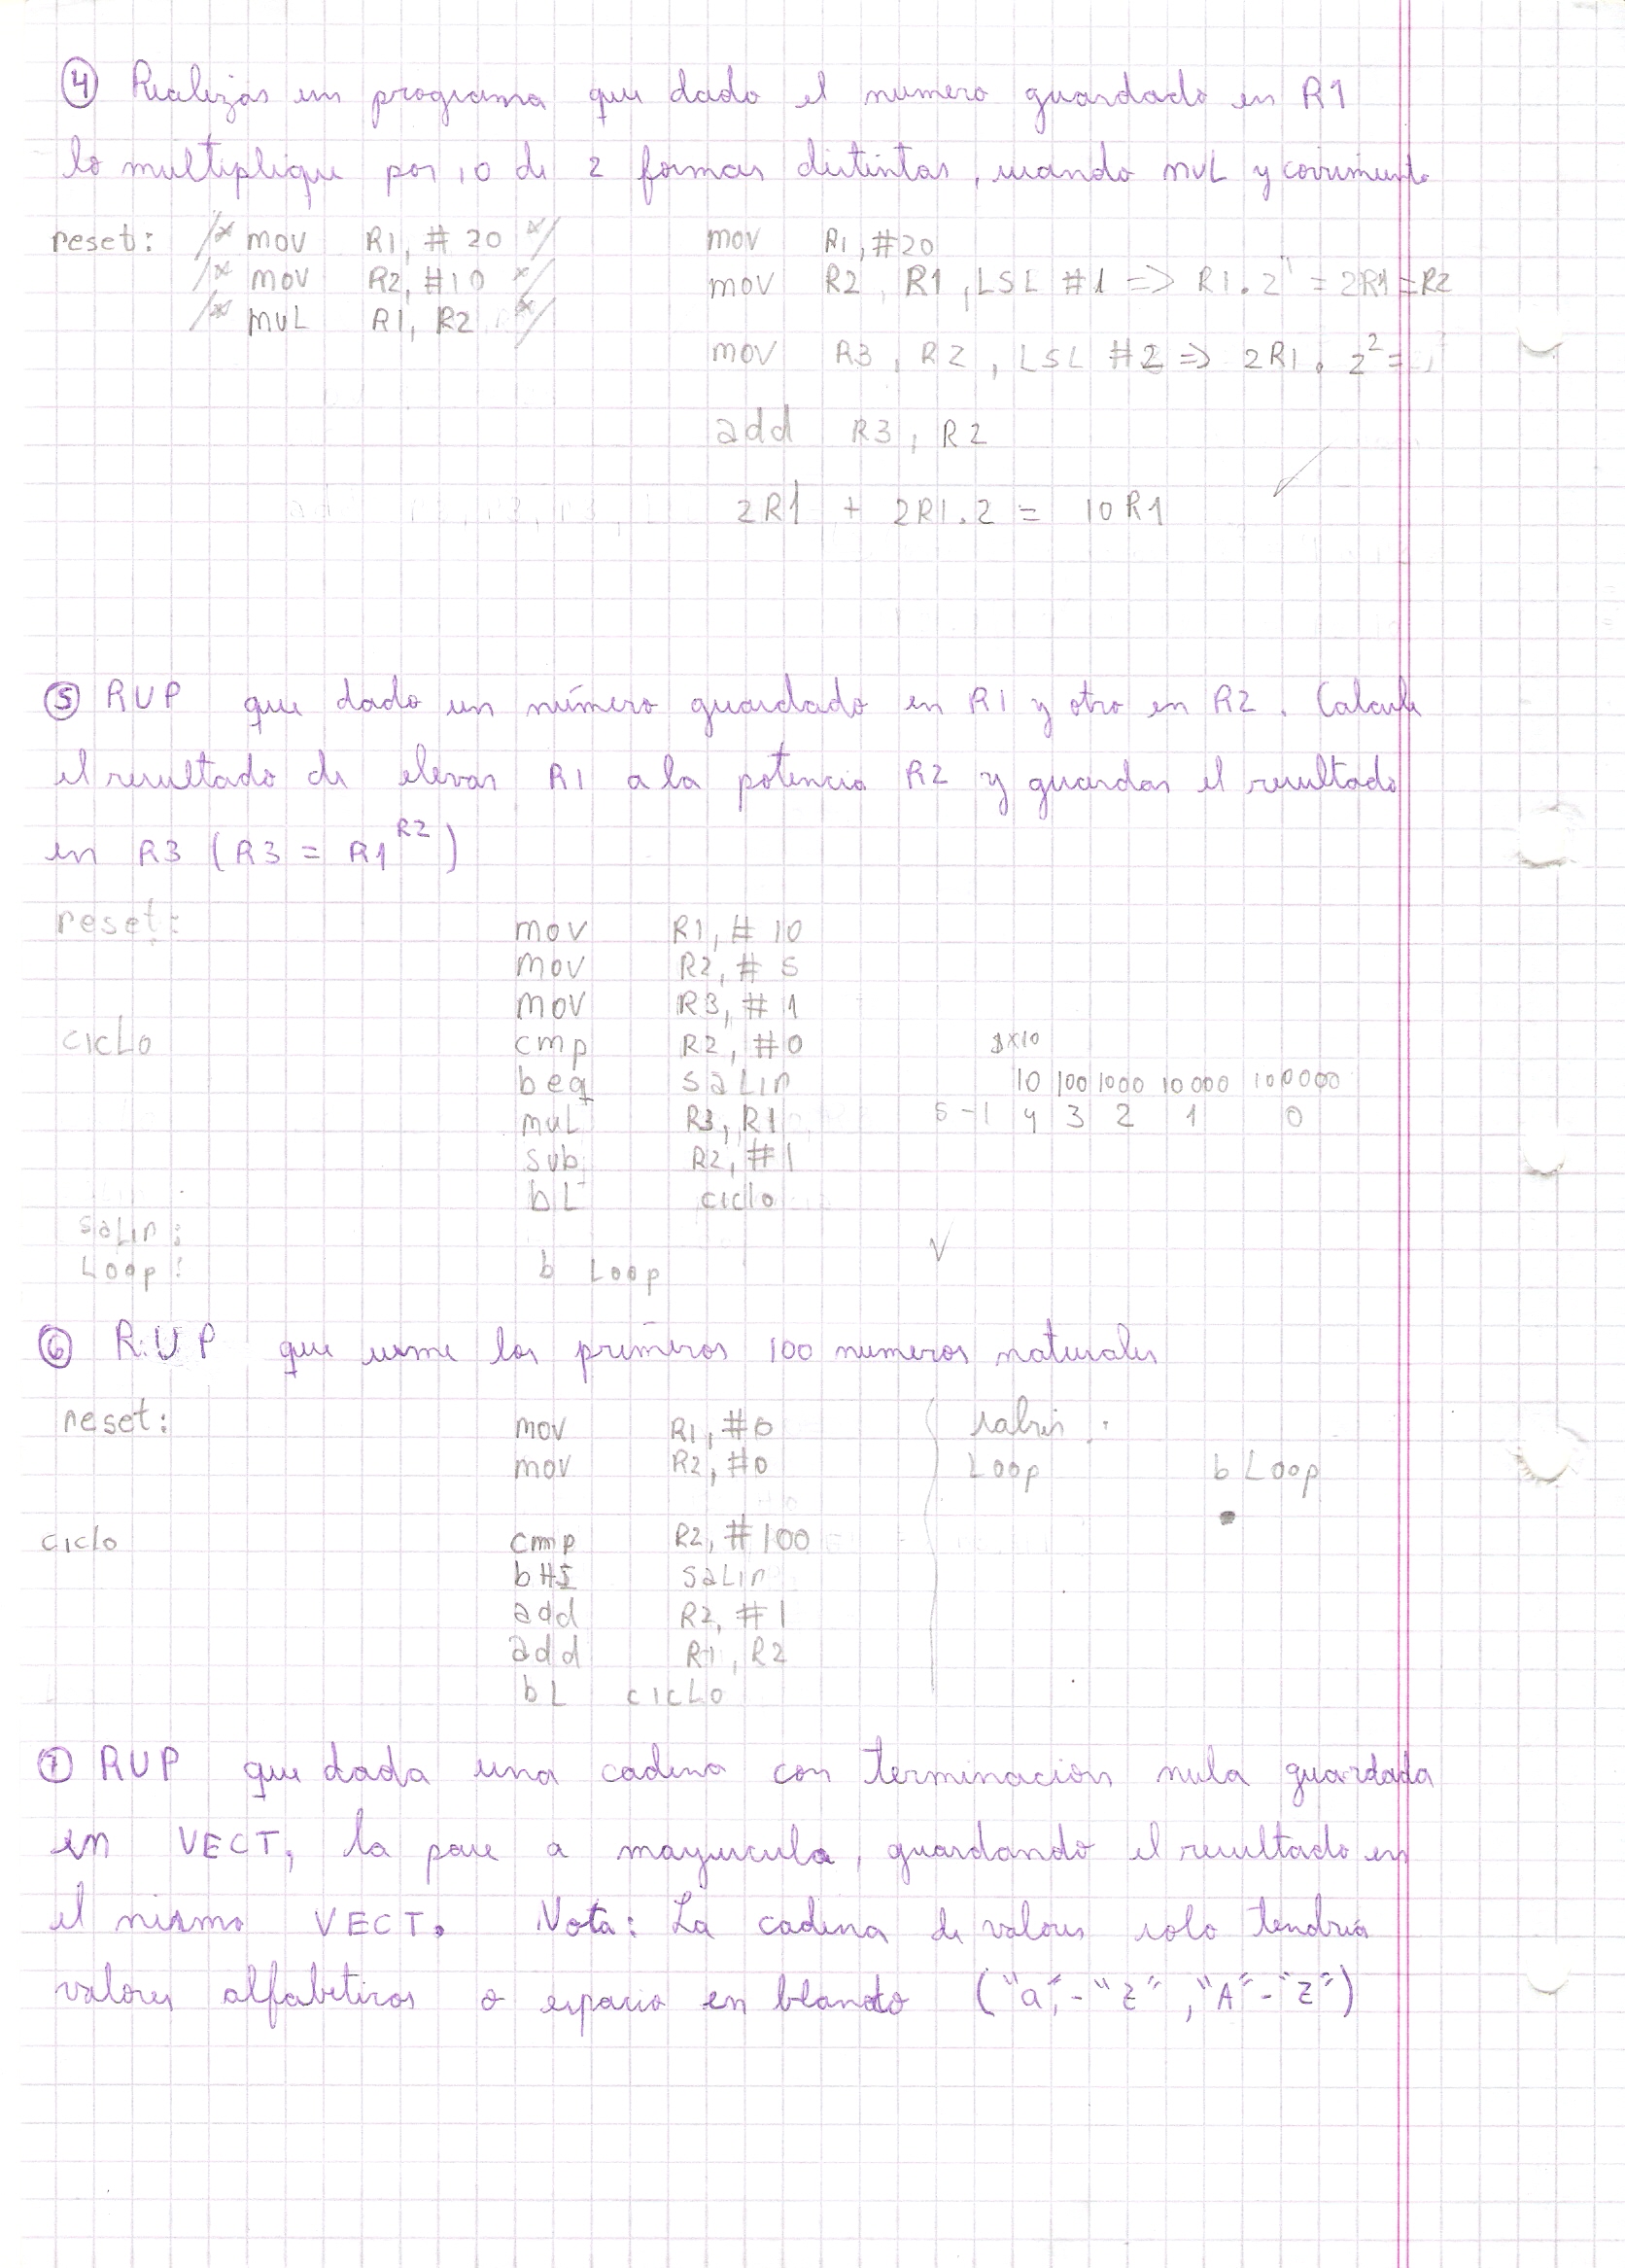 ④ Realizar un programa que dado el numero guardado en R1
lo multiplique por 10 de 2 formas distintas, usando MUL y corrimiento
reset: /* mov R1, #20 */ mov R1, #20
/* mov R2, #10 */ mov R2, R1, LSL #1 => R1.2¹ = 2R1 = R2
/* mul R1, R2 */
mov R3, R2, LSL #2 => 2R1. 2² =
add R3, R2
2R1 + 2R1.2 = 10R1
⑤ RUP que dado un número guardado en R1 y otro en R2. Calcule
el resultado de elevar R1 a la potencia R2 y guardar el resultado
en R3 (R3 = R1^R2)
reset: mov R1, #10
mov R2, #5
mov R3, #1
ciclo cmp R2, #0 1x10
beq salir 10 100 1000 10000 100000
mul R3, R1 5-1 4 3 2 1 0
sub R2, #1
bL ciclo
salir:
Loop: b Loop
⑥ R.U.P que sume los primeros 100 numeros naturales
reset: mov R1, #0 salir:
mov R2, #0 Loop b Loop
ciclo cmp R2, #100
bHI salir
add R2, #1
add R1, R2
bL ciclo
⑦ RUP que dada una cadena con terminación nula guardada
en VECT, la pase a mayuscula, guardando el resultado en
el mismo VECT. Nota: La cadena de valores solo tendria
valores alfabeticos o espacio en blanco ("a"-"z", "A"-"Z")